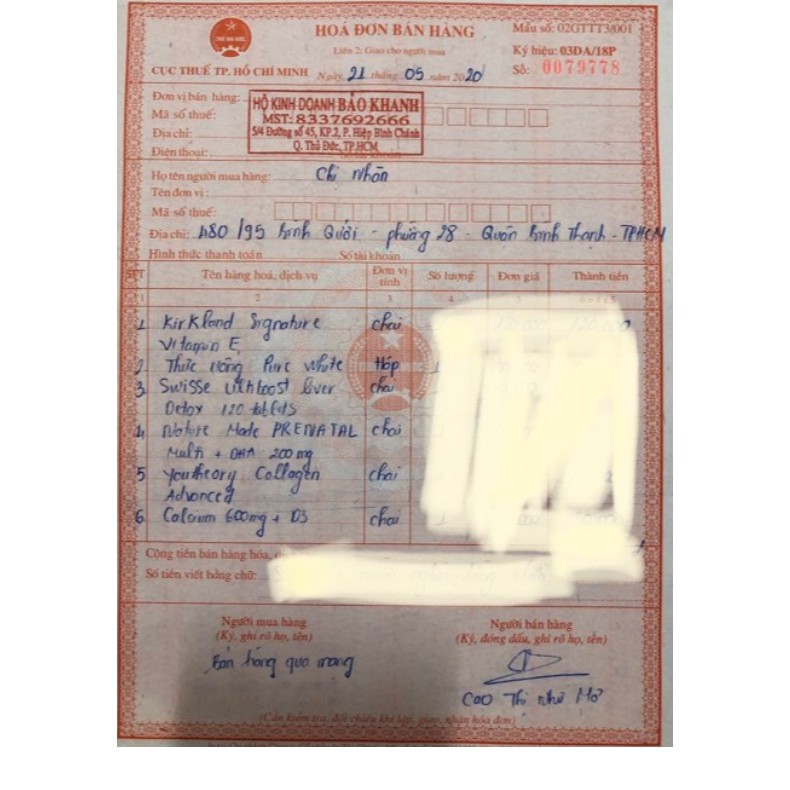 HOÁ ĐƠN BÁN HÀNG
Mẫu số: 02GTTT3/001
Liên 2: Giao cho người mua
Ký hiệu: 03DA/18P
CỤC THUẾ TP. HỒ CHÍ MINH
Ngày 21 tháng 05 năm 2020
Số: 0079778
Đơn vị bán hàng:
HỘ KINH DOANH BẢO KHANH
Mã số thuế:
MST: 8337692666
Địa chỉ:
5/4 Đường số 45, KP.2, P. Hiệp Bình Chánh
Điện thoại:
Q. Thủ Đức, TP.HCM
Họ tên người mua hàng: Chị Nhân
Tên đơn vị:
Mã số thuế:
Địa chỉ: 480/95 Bình Quới - phường 28 - Quận Bình Thạnh - TPHCM
Hình thức thanh toán Số tài khoản
STT Tên hàng hoá, dịch vụ Đơn vị tính Số lượng Đơn giá Thành tiền
1 2 3 4
1 Kirkland Signature chai
Vitamin E
2 Thức uống Pure White Hộp
3 Swisse Ultiboost liver chai
Detox 120 tablets
4 Nature Made PRENATAL chai
Multi + DHA 200mg
5 Youtheory Collagen chai
Advanced
6 Calcium 600mg + D3 chai
Cộng tiền bán hàng hóa,
Số tiền viết bằng chữ:
Người mua hàng
(Ký, ghi rõ họ, tên)
Người bán hàng
(Ký, đóng dấu, ghi rõ họ, tên)
Bán hàng qua mạng
Cao Thị Như Mơ
(Cần kiểm tra, đối chiếu khi lập, giao, nhận hóa đơn)